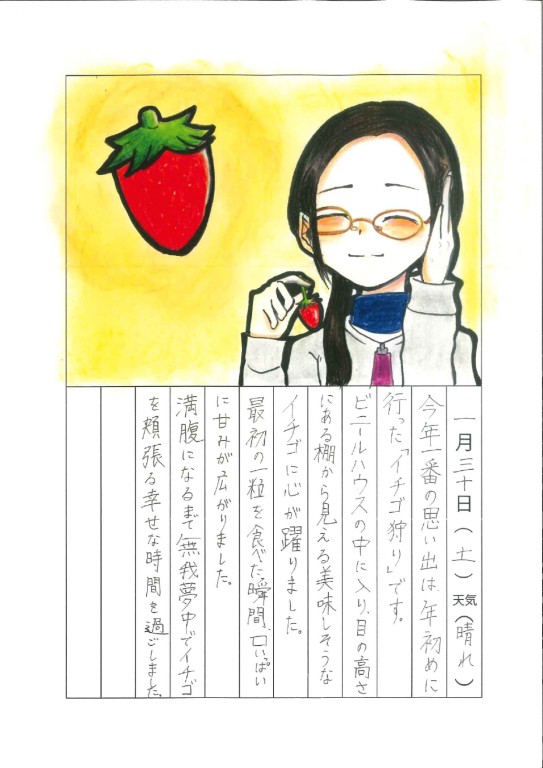 一月三十日(土)天気(晴れ)
今年一番の思い出は、年初めに
行った「イチゴ狩り」です。
ビニールハウスの中に入り、目の高さ
にある棚から見える美味しそうな
イチゴに心が躍りました。
最初の一粒を食べた瞬間、口いっぱい
に甘みが広がりました。
満腹になるまで無我夢中でイチゴ
を頬張る幸せな時間を過ごしました。